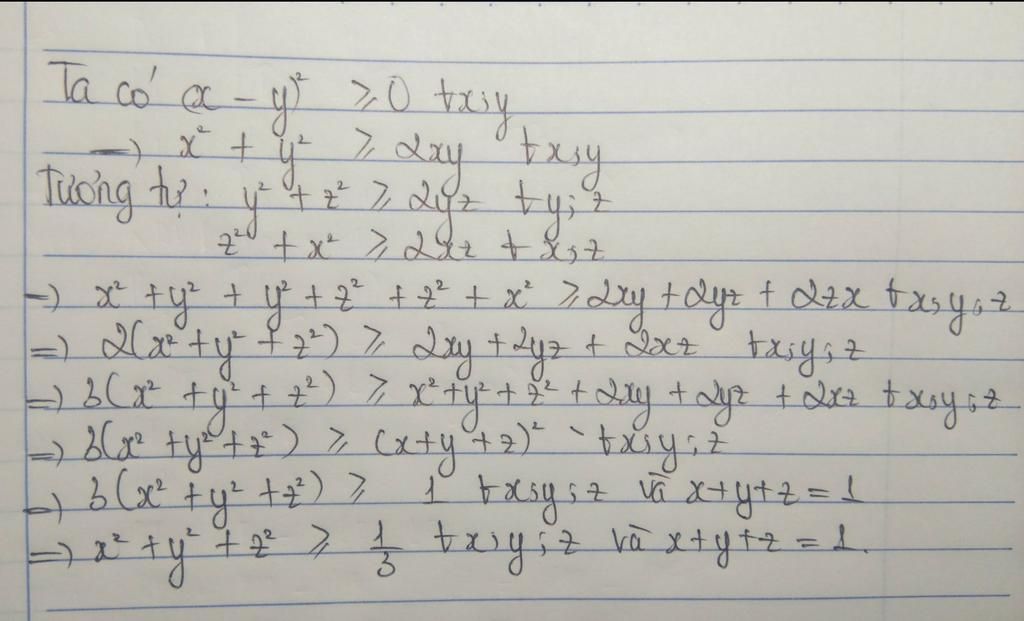 Ta có (x - y)² ⩾ 0 ∀x;y
⇒ x² + y² ⩾ 2xy ∀x;y
Tương tự: y² + z² ⩾ 2yz ∀y;z
z² + x² ⩾ 2xz ∀x;z
⇒ x² + y² + y² + z² + z² + x² ⩾ 2xy + 2yz + 2zx ∀x;y;z
⇒ 2(x² + y² + z²) ⩾ 2xy + 2yz + 2xz ∀x;y;z
⇒ 3(x² + y² + z²) ⩾ x² + y² + z² + 2xy + 2yz + 2xz ∀x;y;z
⇒ 3(x² + y² + z²) ⩾ (x + y + z)² ∀x;y;z
⇒ 3(x² + y² + z²) ⩾ 1 ∀x;y;z và x + y + z = 1
⇒ x² + y² + z² ⩾ 1/3 ∀x;y;z và x + y + z = 1.